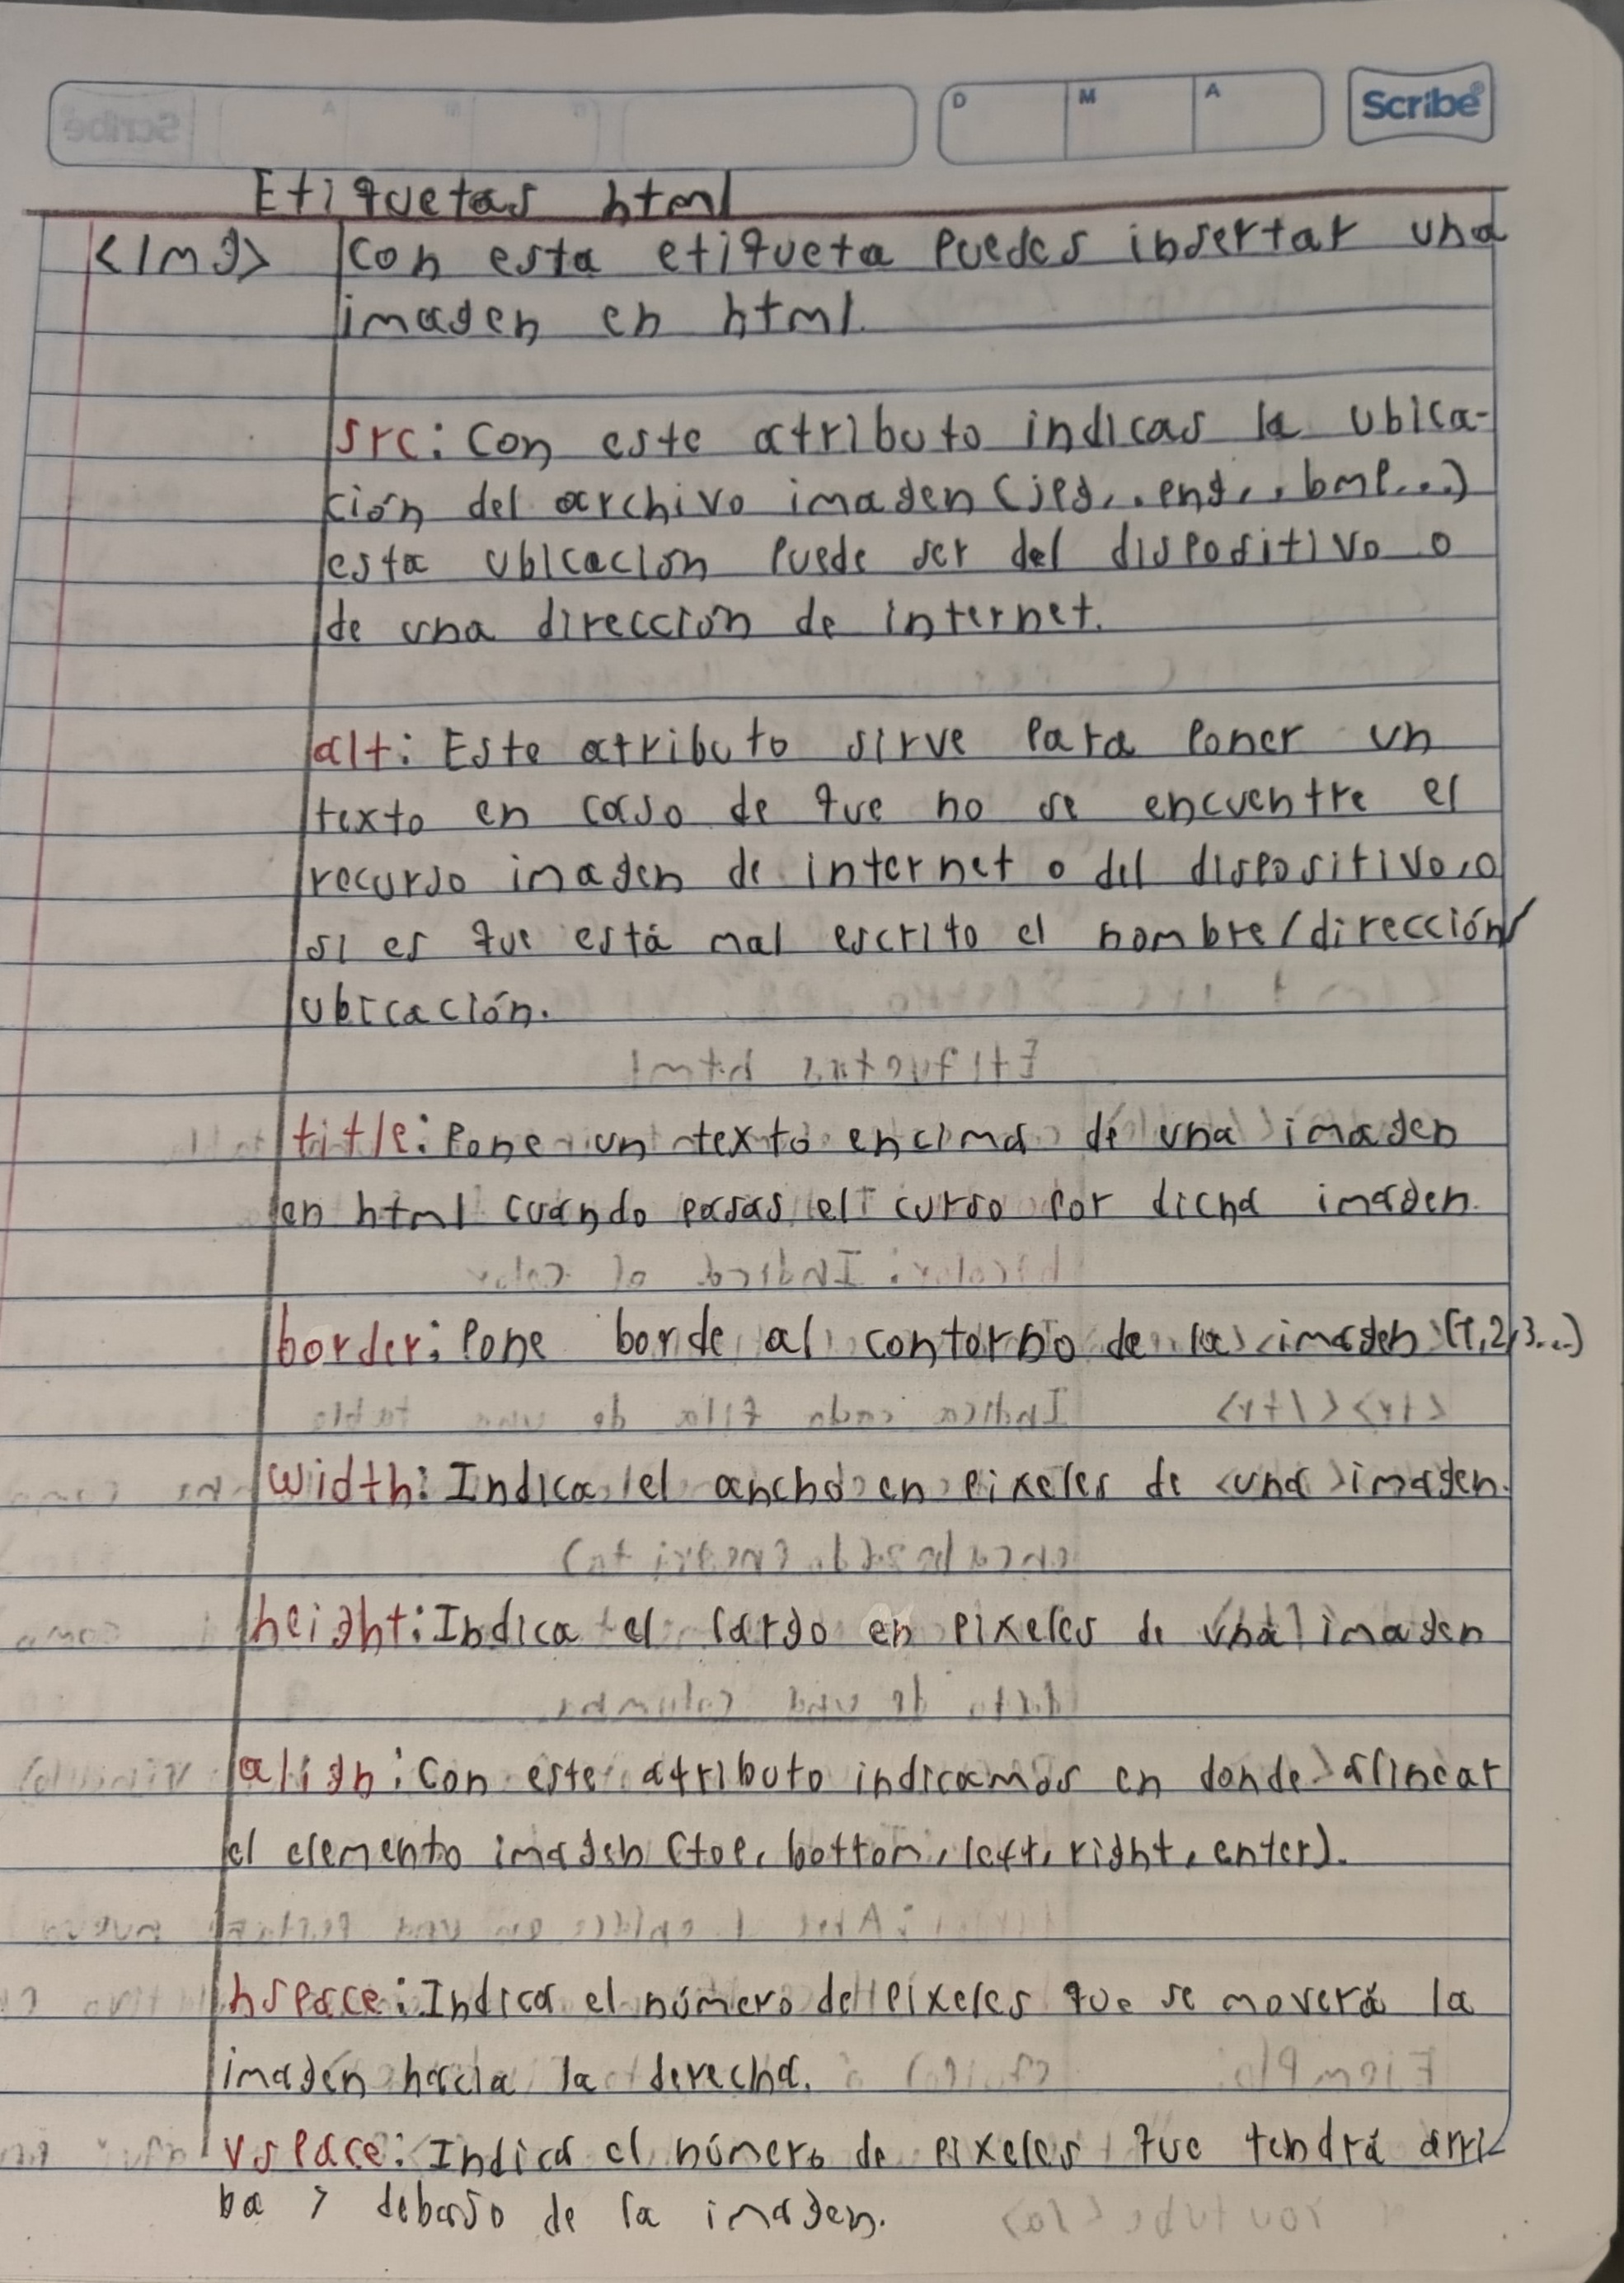 D M A Scribe
Etiquetas html
<Img> Con esta etiqueta puedes insertar una
imagen en html.
src: Con este atributo indicas la ubica-
ción del archivo imagen (jpg, .png, .bmp...)
esta ubicación puede ser del dispositivo o
de una dirección de internet.
alt: Este atributo sirve para poner un
texto en caso de que no se encuentre el
recurso imagen de internet o del dispositivo, o
si es que está mal escrito el nombre/dirección/
ubicación.
title: Pone un texto encima de una imagen
en html cuando pasas el curso por dicha imagen.
border: Pone borde al contorno de la imagen (1,2,3...)
width: Indica el ancho en pixeles de una imagen.
height: Indica el largo en pixeles de una imagen
align: Con este atributo indicamos en donde alinear
el elemento imagen (top, bottom, left, right, enter).
hspace: Indica el número de pixeles que se moverá la
imagen hacia la derecha.
vspace: Indica el número de pixeles que tendrá arri
ba y debajo de la imagen.